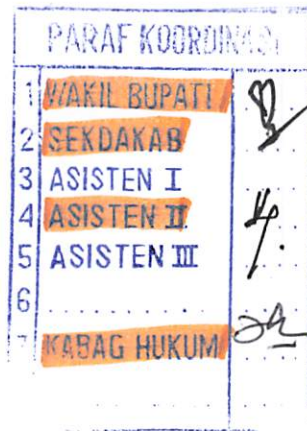 PARAF KOORDINASI
1 WAKIL BUPATI
2 SEKDAKAB
3 ASISTEN I
4 ASISTEN II
5 ASISTEN III
6 ..........
7 KABAG HUKUM